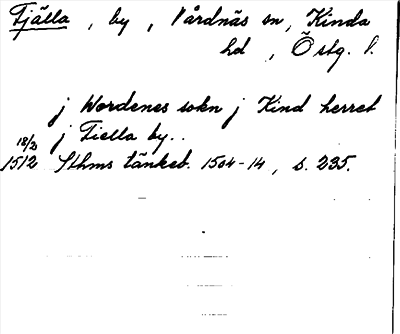 Fjälla, by, Vårdnäs sn, Kinda
hd, Östg. l.
j Wordenes sokn j Kind herret
j Fiella by..
18/3
1512 Sthms tänkeb. 1504-14, s. 235.